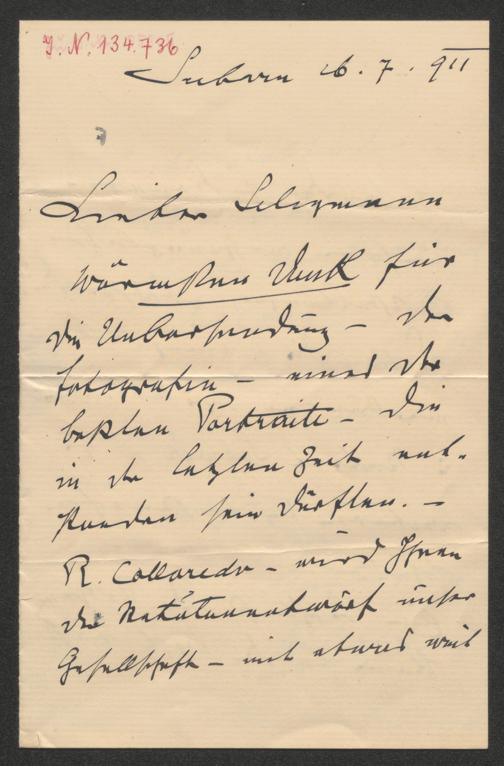 J. N. 134.736
Subern 16. 7. 911
Lieber Seligmann
wärmsten Dank für
die Uebersendung – der
fotografie – eines der
besten Portraite – die
in der letzten Zeit ent-
standen sein dürften. –
R. Colloredo – wird Ihnen
die Statutenentwürf unser
Gesellschaft – mit etwas weit